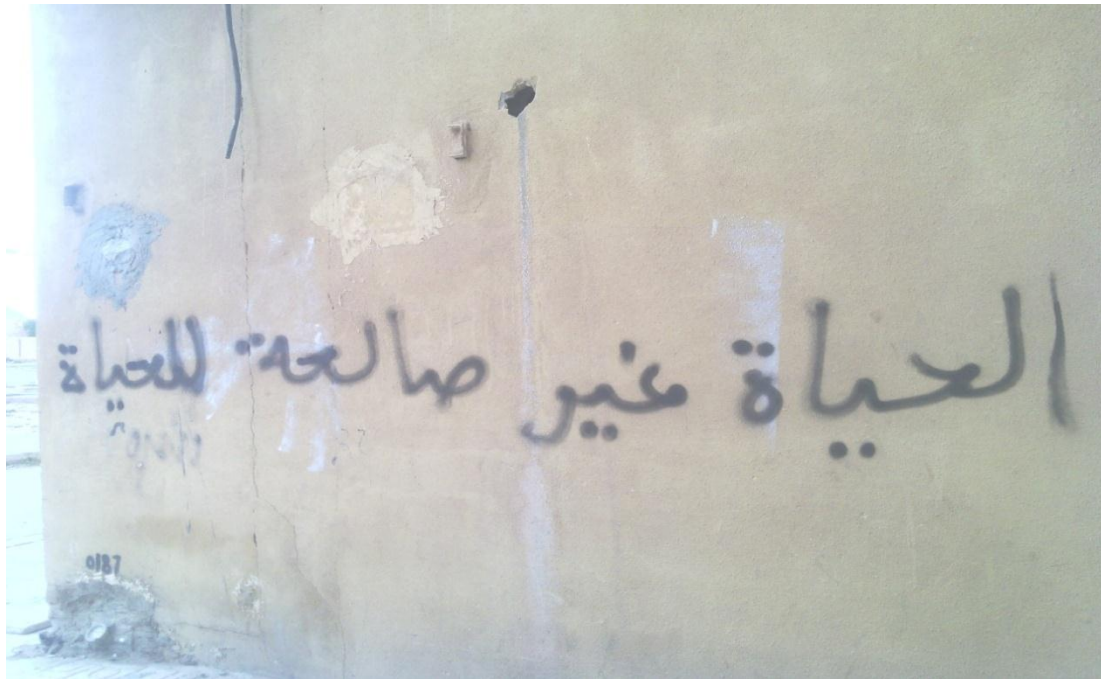 الحياة غير صالحة للحياة
0187